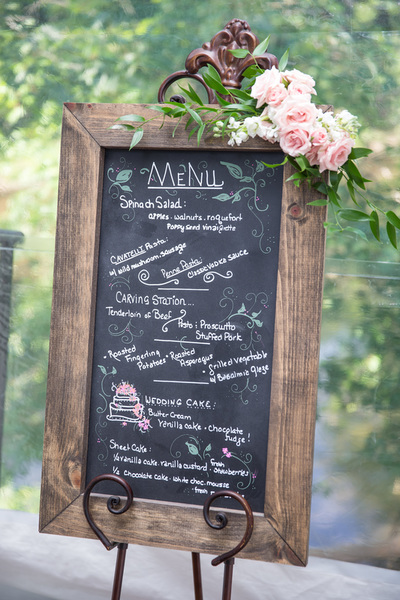 MENU
Spinach Salad:
apples . walnuts . roquefort
Poppy Seed Vinaigrette
CAVATELLI Pasta:
w/ wild mushroom sausage
Penne Pasta:
Classic Vodka Sauce
CARVING STATION...
Tenderloin of Beef
Pesto & Prosciutto
Stuffed Pork
• Roasted Fingerling Potatoes
• Roasted Asparagus
• Grilled Vegetable
w/ Balsamic Glaze
WEDDING CAKE:
Butter Cream
Vanilla cake . chocolate
fudge!
Sheet Cake:
1/2 vanilla cake . vanilla custard . Fresh Strawberries.
1/2 Chocolate Cake . white choc. mousse
. Fresh